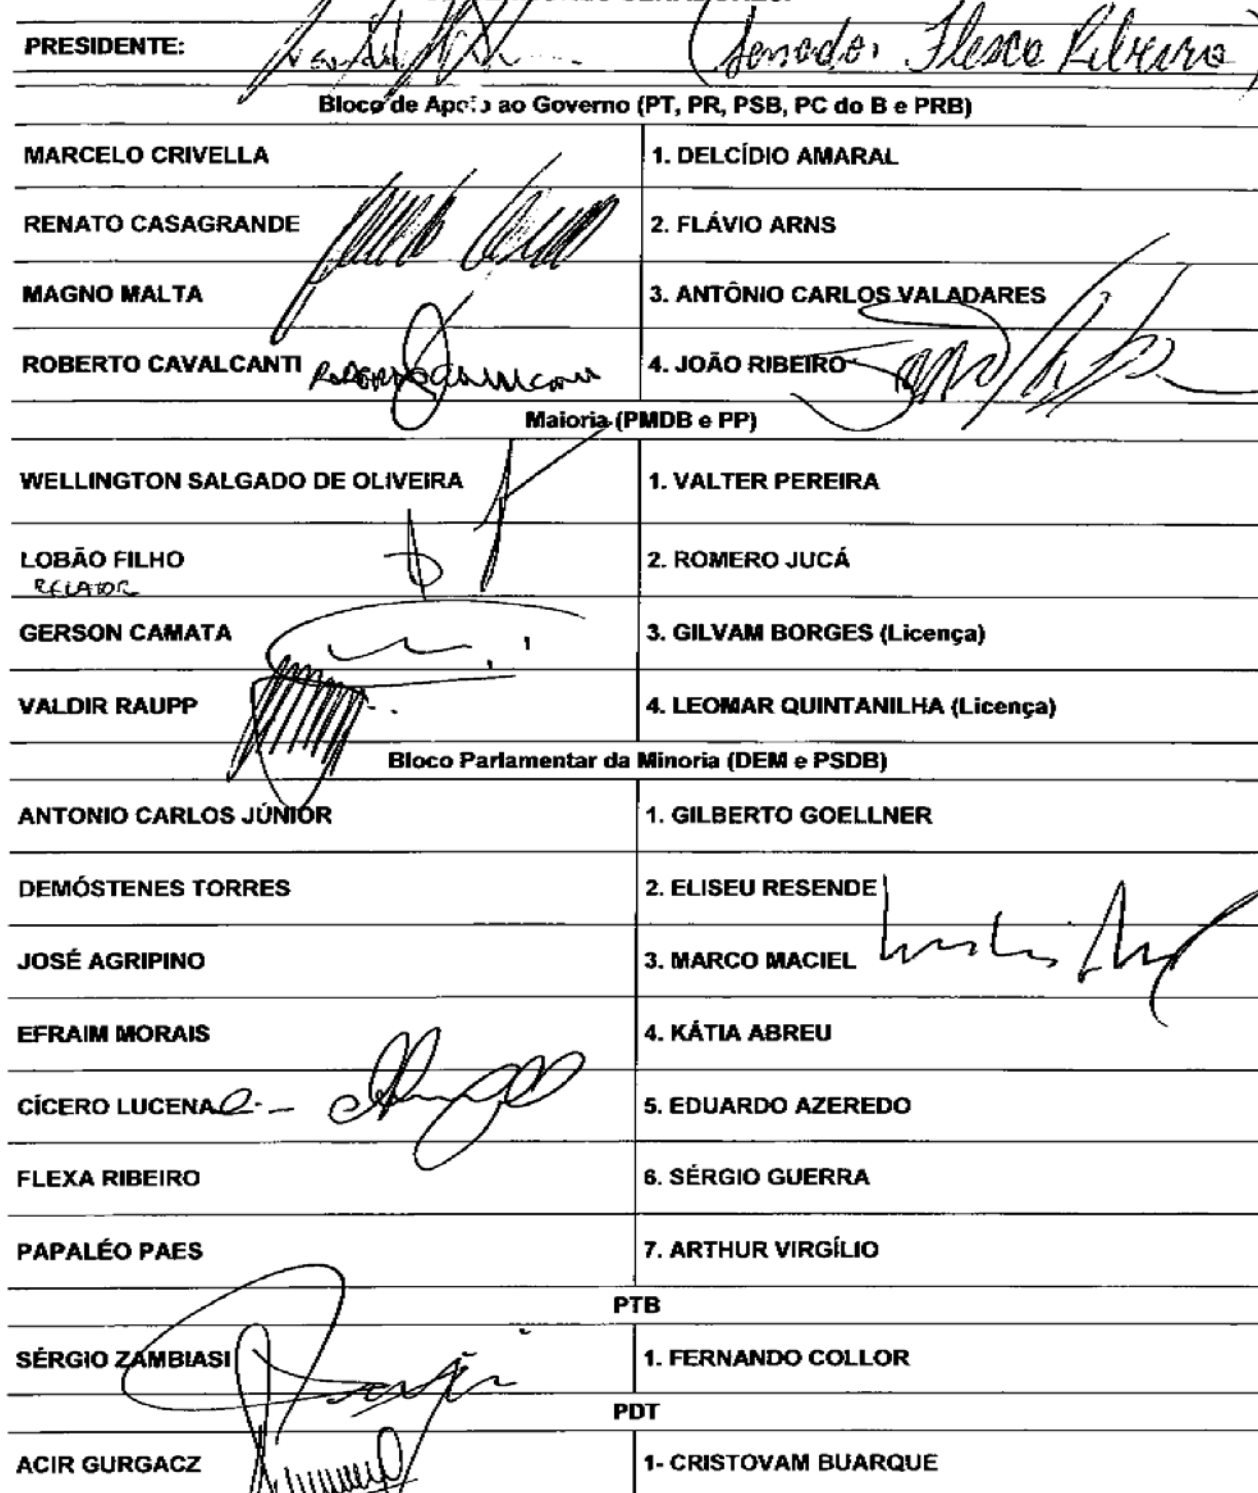 PRESIDENTE: (Senador Flexa Ribeiro)
Bloco de Apoio ao Governo (PT, PR, PSB, PC do B e PRB)
MARCELO CRIVELLA 1. DELCÍDIO AMARAL
RENATO CASAGRANDE 2. FLÁVIO ARNS
MAGNO MALTA 3. ANTÔNIO CARLOS VALADARES
ROBERTO CAVALCANTI 4. JOÃO RIBEIRO
Maioria (PMDB e PP)
WELLINGTON SALGADO DE OLIVEIRA 1. VALTER PEREIRA
LOBÃO FILHO 2. ROMERO JUCÁ
RELATOR
GERSON CAMATA 3. GILVAM BORGES (Licença)
VALDIR RAUPP 4. LEOMAR QUINTANILHA (Licença)
Bloco Parlamentar da Minoria (DEM e PSDB)
ANTONIO CARLOS JÚNIOR 1. GILBERTO GOELLNER
DEMÓSTENES TORRES 2. ELISEU RESENDE
JOSÉ AGRIPINO 3. MARCO MACIEL
EFRAIM MORAIS 4. KÁTIA ABREU
CÍCERO LUCENA 5. EDUARDO AZEREDO
FLEXA RIBEIRO 6. SÉRGIO GUERRA
PAPALÉO PAES 7. ARTHUR VIRGÍLIO
PTB
SÉRGIO ZAMBIASI 1. FERNANDO COLLOR
PDT
ACIR GURGACZ 1- CRISTOVAM BUARQUE